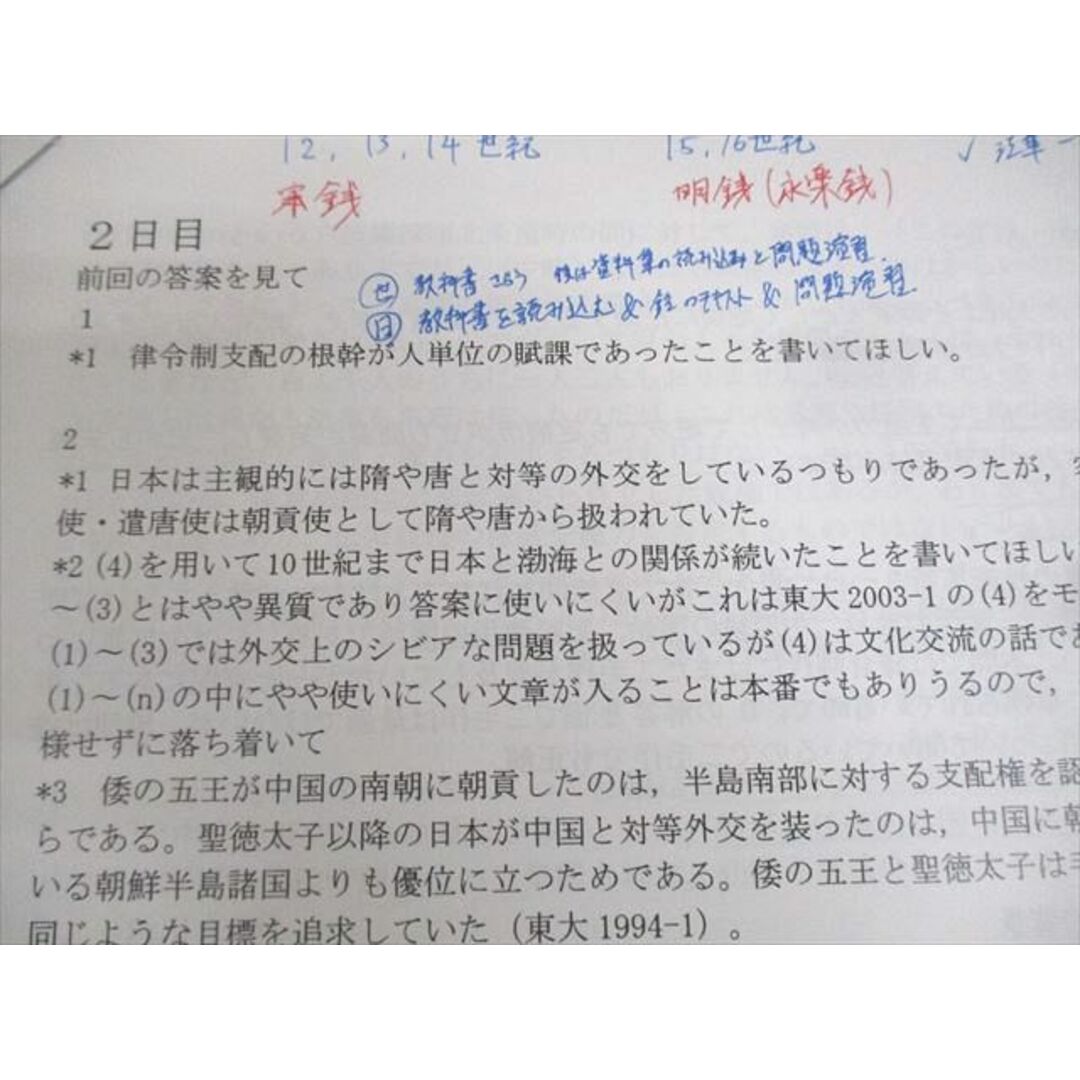 12, 13, 14世紀 15, 16世紀 √ 法準
宋銭 明銭(永楽銭)
2日目
前回の答案を見て
㊥ 教科書さらう 後は資料集の読み込みと問題演習.
1
㊐ 教科書を読み込む & のテキスト & 問題演習
*1 律令制支配の根幹が人単位の賦課であったことを書いてほしい。
2
*1 日本は主観的には隋や唐と対等の外交をしているつもりであったが,
使・遣唐使は朝貢使として隋や唐から扱われていた。
*2 (4)を用いて10世紀まで日本と渤海との関係が続いたことを書いてほしい
～(3)とはやや異質であり答案に使いにくいがこれは東大2003-1の(4)をモ
(1)～(3)では外交上のシビアな問題を扱っているが(4)は文化交流の話であ
(1)～(n)の中にやや使いにくい文章が入ることは本番でもありうるので,
様せずに落ち着いて
*3 倭の五王が中国の南朝に朝貢したのは, 半島南部に対する支配権を認
らである。聖徳太子以降の日本が中国と対等外交を装ったのは, 中国に朝
いる朝鮮半島諸国よりも優位に立つためである。倭の五王と聖徳太子は
同じような目標を追求していた (東大1994-1)。